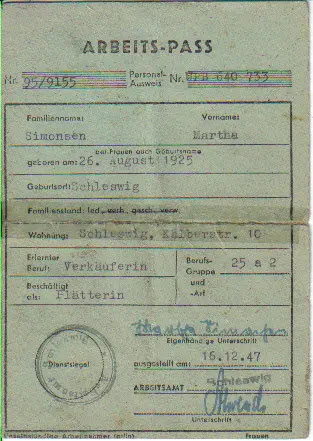 ARBEITS-PASS
Nr. 95/9155 Personal-Ausweis Nr. 640 733
Familienname: Vorname:
Simonsen Martha
bei Frauen auch Geburtsname
geboren am: 26. August 1925
Geburtsort: Schleswig
Familienstand: led. verh. gesch. verw.
Wohnung: Schleswig, Kälberstr. 10
Erlernter Beruf: Verkäuferin
Berufs-Gruppe und -Art 25 a 2
Beschäftigt als: Plätterin
Martha Simonsen
Eigenhändige Unterschrift
Dienstsiegel
ausgestellt am: 16.12.47
ARBEITSAMT Schleswig
Unterschrift
Frauen